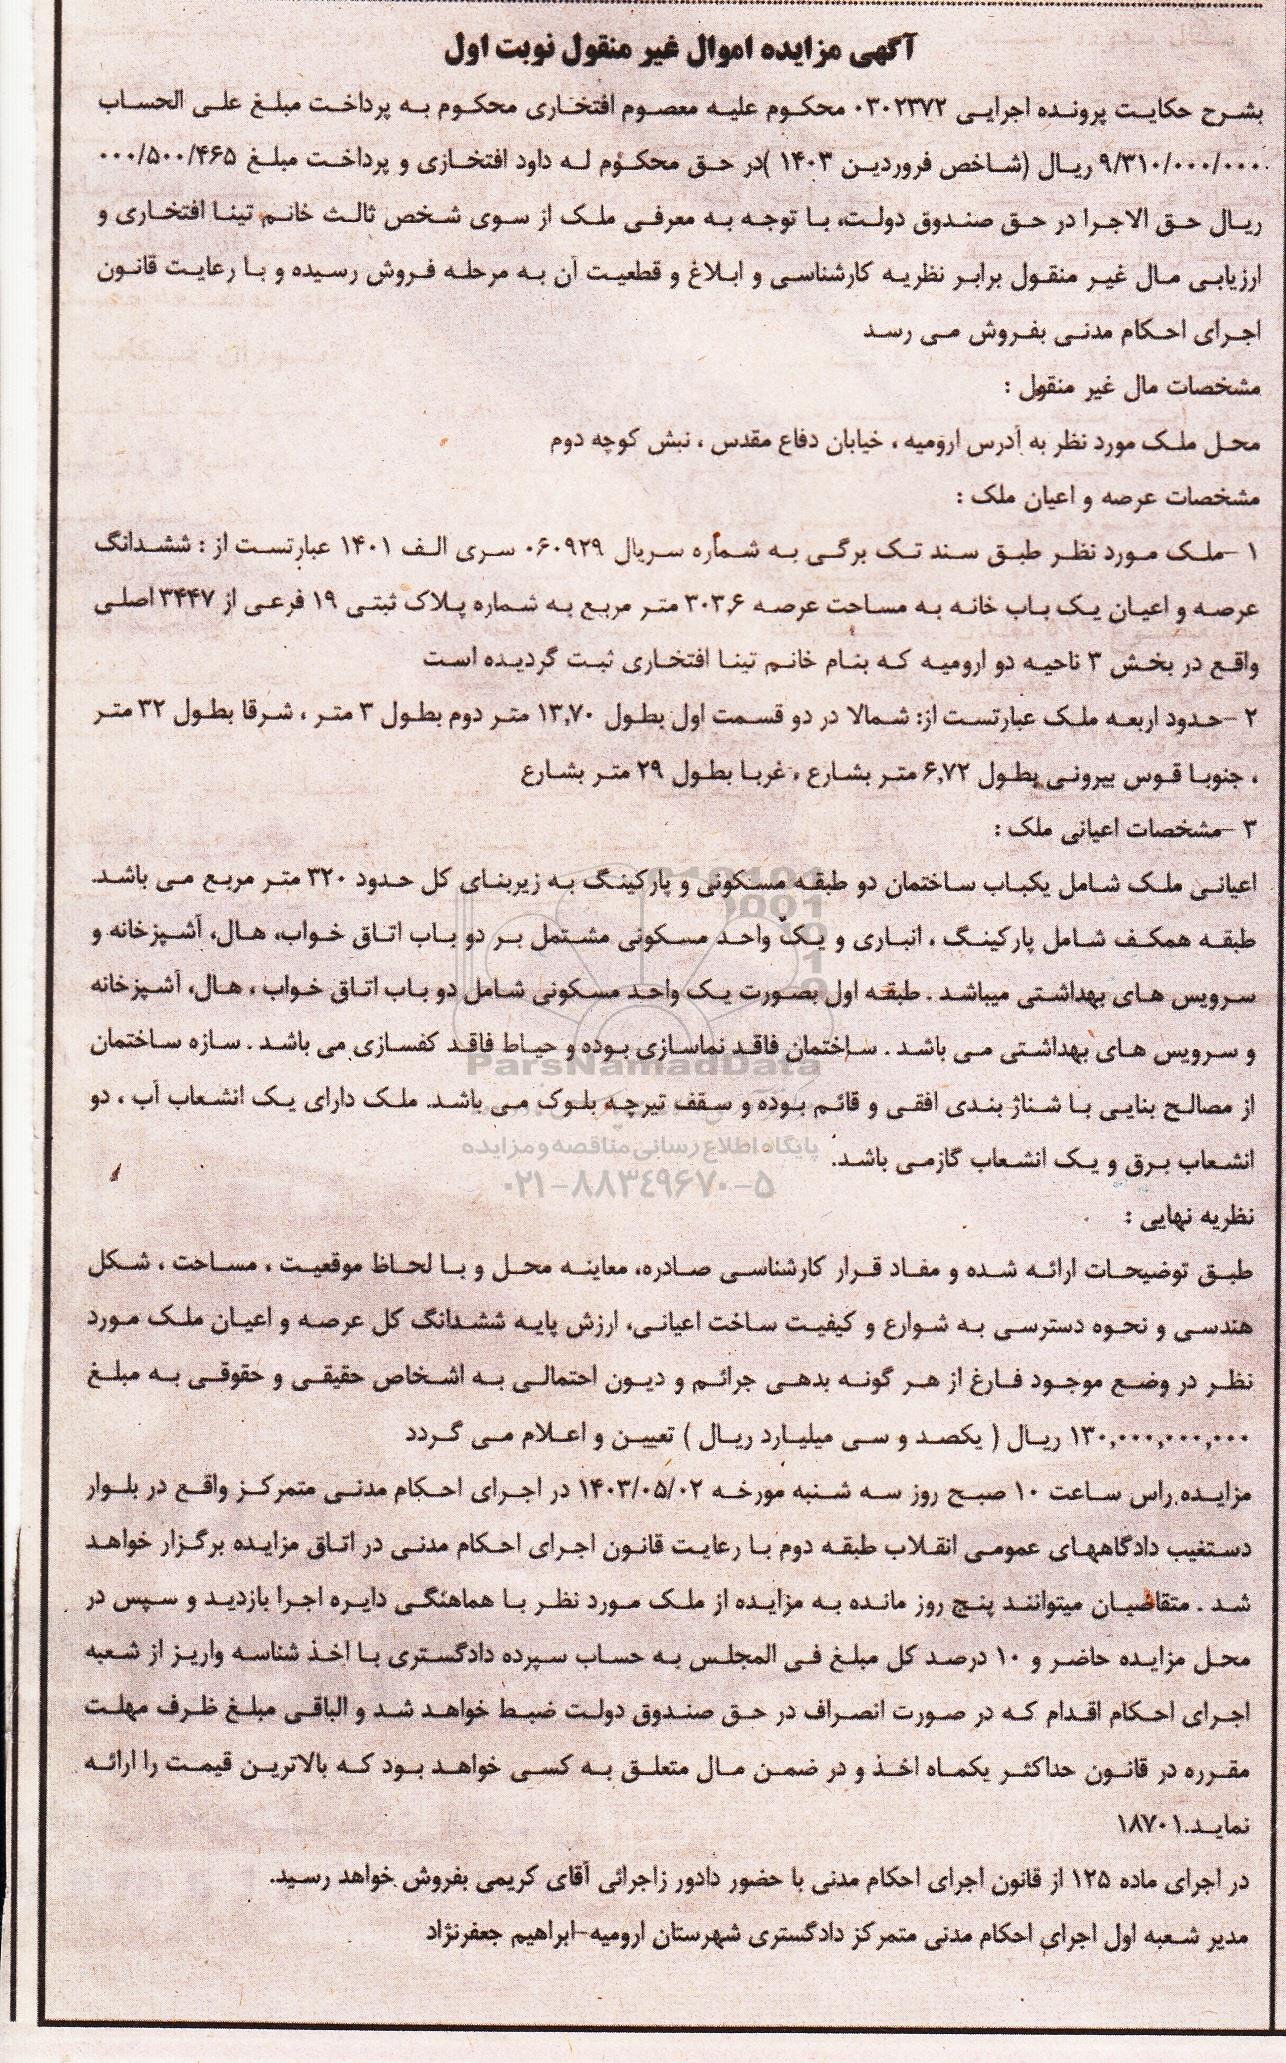 آگهی مزایده اموال غیر منقول نوبت اول
بشرح حکایت پرونده اجرایی ۰۳۰۲۳۷۲ محکوم علیه معصوم افتخاری محکوم به پرداخت مبلغ علی الحساب
۹/۳۱۰/۰۰۰/۰۰۰ ریال (شاخص فروردین ۱۴۰۳ )در حق محکوم له داود افتخازی و پرداخت مبلغ ۰۰۰/۵۰۰/۴۶۵
ریال حق الاجرا در حق صندوق دولت، با توجه به معرفی ملک از سوی شخص ثالث خانم تینا افتخاری و
ارزیابی مال غیر منقول برابر نظریه کارشناسی و ابلاغ و قطعیت آن به مرحله فروش رسیده و با رعایت قانون
اجرای احکام مدنی بفروش می رسد
مشخصات مال غیر منقول :
محل ملک مورد نظر به آدرس ارومیه ، خیابان دفاع مقدس ، نبش کوچه دوم
مشخصات عرصه و اعیان ملک :
۱ –ملک مورد نظر طبق سند تک برگی به شماره سریال ۰۶۰۹۲۹ سری الف ۱۴۰۱ عبارتست از : ششدانگ
عرصه و اعیان یک باب خانه به مساحت عرصه ۳۰۳٫۶ متر مربع به شماره پلاک ثبتی ۱۹ فرعی از ۳۴۴۷ اصلی
واقع در بخش ۳ ناحیه دو ارومیه که بنام خانم تینا افتخاری ثبت گردیده است
۲ –حدود اربعه ملک عبارتست از: شمالا در دو قسمت اول بطول ۱۳٫۷۰ متر دوم بطول ۳ متر ، شرقا بطول ۳۲ متر
، جنوبا قوس بیرونی بطول ۶٫۷۲ متر بشارع ، غربا بطول ۲۹ متر بشارع
۳ –مشخصات اعیانی ملک :
اعیانی ملک شامل یکباب ساختمان دو طبقه مسکونی و پارکینگ به زیربنای کل حدود ۳۲۰ متر مربع می باشد.
طبقه همکف شامل پارکینگ ، انباری و یک واحد مسکونی مشتمل بر دو باب اتاق خواب، هال، آشپزخانه و
سرویس های بهداشتی میباشد . طبقه اول بصورت یک واحد مسکونی شامل دو باب اتاق خواب ، هال، آشپزخانه
و سرویس های بهداشتی می باشد . ساختمان فاقد نماسازی بوده و حیاط فاقد کفسازی می باشد . سازه ساختمان
ParsNamadData
از مصالح بنایی با شناژ بندی افقی و قائم بوده و سقف تیرچه بلوک می باشد. ملک دارای یک انشعاب آب ، دو
پایگاه اطلاع رسانی مناقصه و مزایده
انشعاب برق و یک انشعاب گازمی باشد.
۰۲۱-۸۸۳۴۹۶۷۰-۵
نظریه نهایی :
طبق توضیحات ارائه شده و مفاد قرار کارشناسی صادره، معاینه محل و با لحاظ موقعیت ، مساحت ، شکل
هندسی و نحوه دسترسی به شوارع و کیفیت ساخت اعیانی، ارزش پایه ششدانگ کل عرصه و اعیان ملک مورد
نظر در وضع موجود فارغ از هر گونه بدهی جرائم و دیون احتمالی به اشخاص حقیقی و حقوقی به مبلغ
۱۳۰,۰۰۰,۰۰۰,۰۰۰ ریال ( یکصد و سی میلیارد ریال ) تعیین و اعلام می گردد
مزایده راس ساعت ۱۰ صبح روز سه شنبه مورخه ۱۴۰۳/۰۵/۰۲ در اجرای احکام مدنی متمرکز واقع در بلوار
دستغیب دادگاههای عمومی انقلاب طبقه دوم با رعایت قانون اجرای احکام مدنی در اتاق مزایده برگزار خواهد
شد . متقاضیان میتوانند پنج روز مانده به مزایده از ملک مورد نظر با هماهنگی دایره اجرا بازدید و سپس در
محل مزایده حاضر و ۱۰ درصد کل مبلغ فی المجلس به حساب سپرده دادگستری با اخذ شناسه واریز از شعبه
اجرای احکام اقدام که در صورت انصراف در حق صندوق دولت ضبط خواهد شد و الباقی مبلغ ظرف مهلت
مقرره در قانون حداکثر یکماه اخذ و در ضمن مال متعلق به کسی خواهد بود که بالاترین قیمت را ارائه
نماید.۱۸۷۰۱
در اجرای ماده ۱۲۵ از قانون اجرای احکام مدنی با حضور دادور زاجرائی آقای کریمی بفروش خواهد رسید.
مدیر شعبه اول اجرای احکام مدنی متمرکز دادگستری شهرستان ارومیه-ابراهیم جعفرنژاد